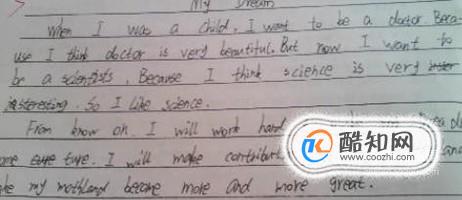 My Dream
When I was a child, I want to be a doctor. Beca
use I think doctor is very beautiful. But now I want to
be a scientists, Because I think science is very
interesting. So I like science.
From know on. I will work hard
ture. I will make contribut and
ke my mothland become more and more great.
酷知网
www.coozhi.com